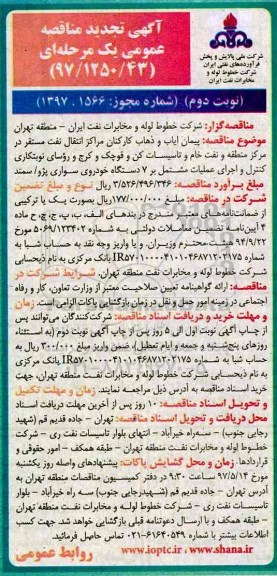 آگهی تجدید مناقصه
عمومی یک مرحله‌ای
(۹۷/۱۲۵۰/۴۳)
شرکت ملی پالایش و پخش
فرآورده‌های نفتی ایران
شرکت خطوط لوله و
مخابرات نفت ایران
(نوبت دوم) (شماره مجوز: ۱۵۶۶. ۱۳۹۷)
مناقصه‌گزار: شرکت خطوط لوله و مخابرات نفت ایران - منطقه تهران
موضوع مناقصه: پیمان ایاب و ذهاب کارکنان مراکز انتقال نفت مستقر در
مرکز منطقه و نفت خام و تاسیسات کن و قوچک و کرج و رؤسای نوبتکاری
کنترل و اجرای عملیات مشتمل بر ۷ دستگاه خودروی سواری پژو/ سمند
مبلغ برآورد مناقصه: ۳/۵۲۶/۴۹۶/۳۴۶ ریال نوع و مبلغ تضمین
شرکت در مناقصه: مبلغ ۱۷۷/۰۰۰/۰۰۰ریال بصورت یک یا ترکیبی
از ضمانت‌نامه‌های معتبر مندرج در بندهای الف، ب، پ، ج، چ، ح ماده
۴ آیین‌نامه تضمین معاملات دولتی به شماره ۵۰۶۹/۱۲۳۴۰۲ مورخ
۹۴/۹/۲۲ هیئت‌محترم وزیران، و یا واریز وجه نقد به حساب شبا به
شماره IR۵۷۰۱۰۰۰۰۴۱۰۱۰۴۶۸۷۱۲۰۲۱۷۵ بانک مرکزی به نام ذیحسابی
شرکت خطوط لوله و مخابرات نفت منطقه تهران. شرایط شرکت در
مناقصه: ارائه گواهینامه تعیین صلاحیت معتبر از وزارت تعاون، کار و رفاه
اجتماعی در زمینه امور حمل و نقل در زمان بازگشایی پاکات الزامی است. زمان
و مهلت خرید و دریافت اسناد مناقصه: شرکت‌کنندگان می‌توانند پس
از چاپ آگهی نوبت اول الی ۵ روز پس از چاپ آگهی نوبت دوم (به استثناء
روزهای پنج‌شنبه و جمعه و ایام تعطیل)، ضمن واریز مبلغ ۳۰۰/۰۰۰ ریال به
حساب شبا به شماره IR۵۷۰۱۰۰۰۰۴۱۰۱۰۴۶۸۷۱۲۰۲۱۷۵ بانک مرکزی
به نام ذیحسابی شرکت خطوط لوله و مخابرات نفت منطقه تهران، جهت
خرید اسناد مناقصه به آدرس ذیل مراجعه نمایند. زمان و مهلت تکمیل
و تحویل اسناد مناقصه: ۱۰ روز پس از آخرین مهلت دریافت اسناد
محل دریافت و تحویل اسناد مناقصه: تهران - جاده قدیم قم (شهید
رجایی جنوب) - سه‌راه خیرآباد - انتهای بلوار تاسیسات نفت ری - شرکت
خطوط لوله و مخابرات نفت منطقه تهران - طبقه همکف - امور حقوقی و
قراردادها. زمان و محل گشایش پاکات: پیشنهادهای واصله روز یکشنبه
مورخ ۹۷/۵/۱۴ ساعت ۹:۳۰ در دفتر کمیسیون مناقصات منطقه تهران به
آدرس تهران - جاده قدیم قم (شهیدرجایی جنوب) سه راه خیرآباد - بلوار
تاسیسات نفت ری - شرکت خطوط لوله و مخابرات نفت منطقه تهران
- طبقه همکف و با ارسال دعوتنامه قبلی بازگشایی خواهد شد. جهت کسب
اطلاعات بیشتر با شماره ۶۱۶۴۰۵۴۹-۰۲۱ تماس حاصل فرمائید.
www.ioptc.ir ، www.shana.ir روابط عمومی